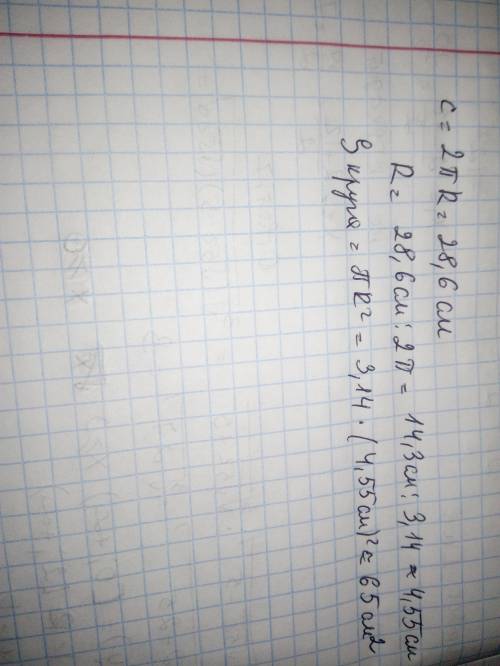 C = 2πR = 28,6 см
R = 28,6 см : 2π = 14,3 см : 3,14 ≈ 4,55 см
S круга = πR² = 3,14 · (4,55 см)² ≈ 65 см²